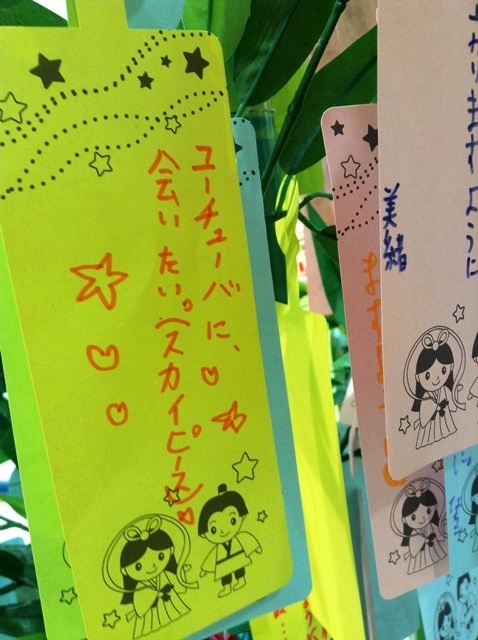 ユーチューバに、♡☆
会いたい。(スカイピース)♡
かりますように
美緒